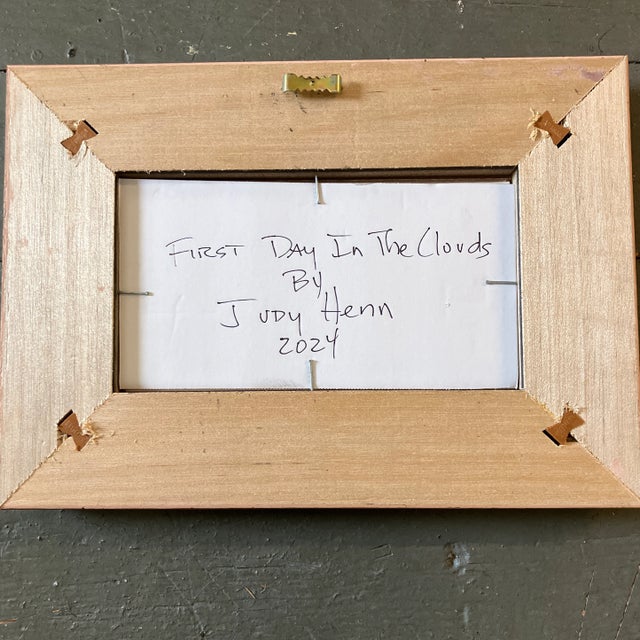 First Day In The Clouds
By
Judy Henn
2024